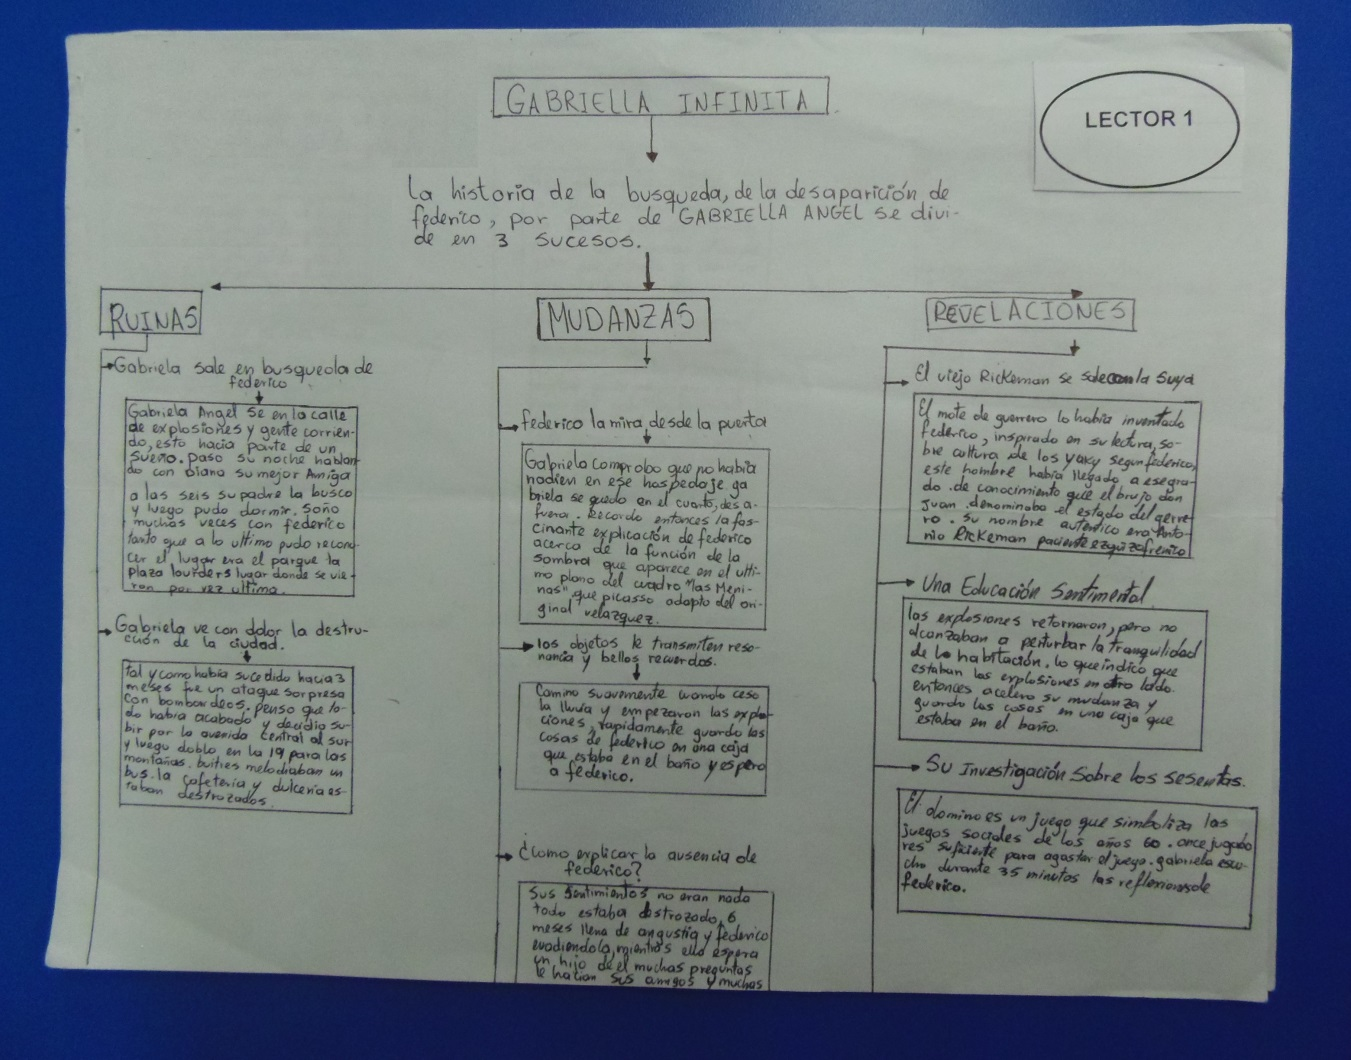 GABRIELLA INFINITA
LECTOR 1
La historia de la busqueda, de la desaparición de
federico, por parte de GABRIELLA ANGEL se divi-
de en 3 sucesos.
RUINAS
Gabriela sale en busqueda de
federico
Gabriela Angel se en la calle
de explosiones y gente corrien-
do, esto hacia parte de un
sueño. Paso su noche hablan
do con Diana su mejor Amiga
a las seis su padre la busco
y luego pudo dormir. Soño
muchas veces con federico
tanto que a lo ultimo pudo recono-
cer el lugar era el parque la
plaza lourders lugar donde se vie-
ron por vez ultima.
Gabriela ve con dolor la destru-
cción de la ciudad.
Tal y como había sucedido hacia 3
meses fue un ataque sorpresa
con bombardeos. penso que to-
do habia acabado y decidio su-
bir por la avenida central al sur
y luego doblo en la 19 para las
montañas. buitres melodiaban un
bus. la cafeteria y dulceria es-
taban destrozados.
MUDANZAS
federico la mira desde la puerta
Gabriela comprobo que no habia
nadien en ese hospedaje ga
briela se quedo en el cuarto, des a-
fuera. Recordo entonces la fas-
cinante explicación de federico
acerca de la función de la
sombra que aparece en el ulti-
mo plano del cuadro "las Meni-
nas" que picasso adapto del ori-
ginal velazquez.
los objetos le transmiten reso-
nancia y bellos recuerdos.
Camino suavemente cuando ceso
la lluvia y empezaron las explo-
ciones, rapidamente guardo las
cosas de federico en una caja
que estaba en el baño y espero
a federico.
¿Como explicar la ausencia de
federico?
Sus sentimientos no eran nada
todo estaba destrozado, 6
meses llena de angustia y federico
evadiendola, mientras ella espera
un hijo de el muchas preguntas
le hacian sus amigos y muchas
REVELACIONES
El viejo Rickeman se sale con la suya
El mote de guerrero lo habia inventado
federico, inspirado en su lectura, so-
bre cultura de los yaky segun federico,
este hombre habia llegado a ese gra-
do de conocimiento que el brujo don
Juan denominaba el estado del gerre-
ro. Su nombre autentico era Anto-
nio Rickeman paciente ezquizofrenico
Una Educación Sentimental
las explosiones retornaron, pero no
alcanzaban a perturbar la tranquilidad
de la habitación, lo que indicó que
estaban las explosiones en otro lado.
entonces acelero su mudanza y
guardo las cosas en una caja que
estaba en el baño.
Su Investigación Sobre los sesentas.
El domino es un juego que simboliza los
juegos sociales de los años 60. once jugado
res suficiente para agostar el juego. gabriela escu-
cho durante 35 minutos las reflexiones de
federico.